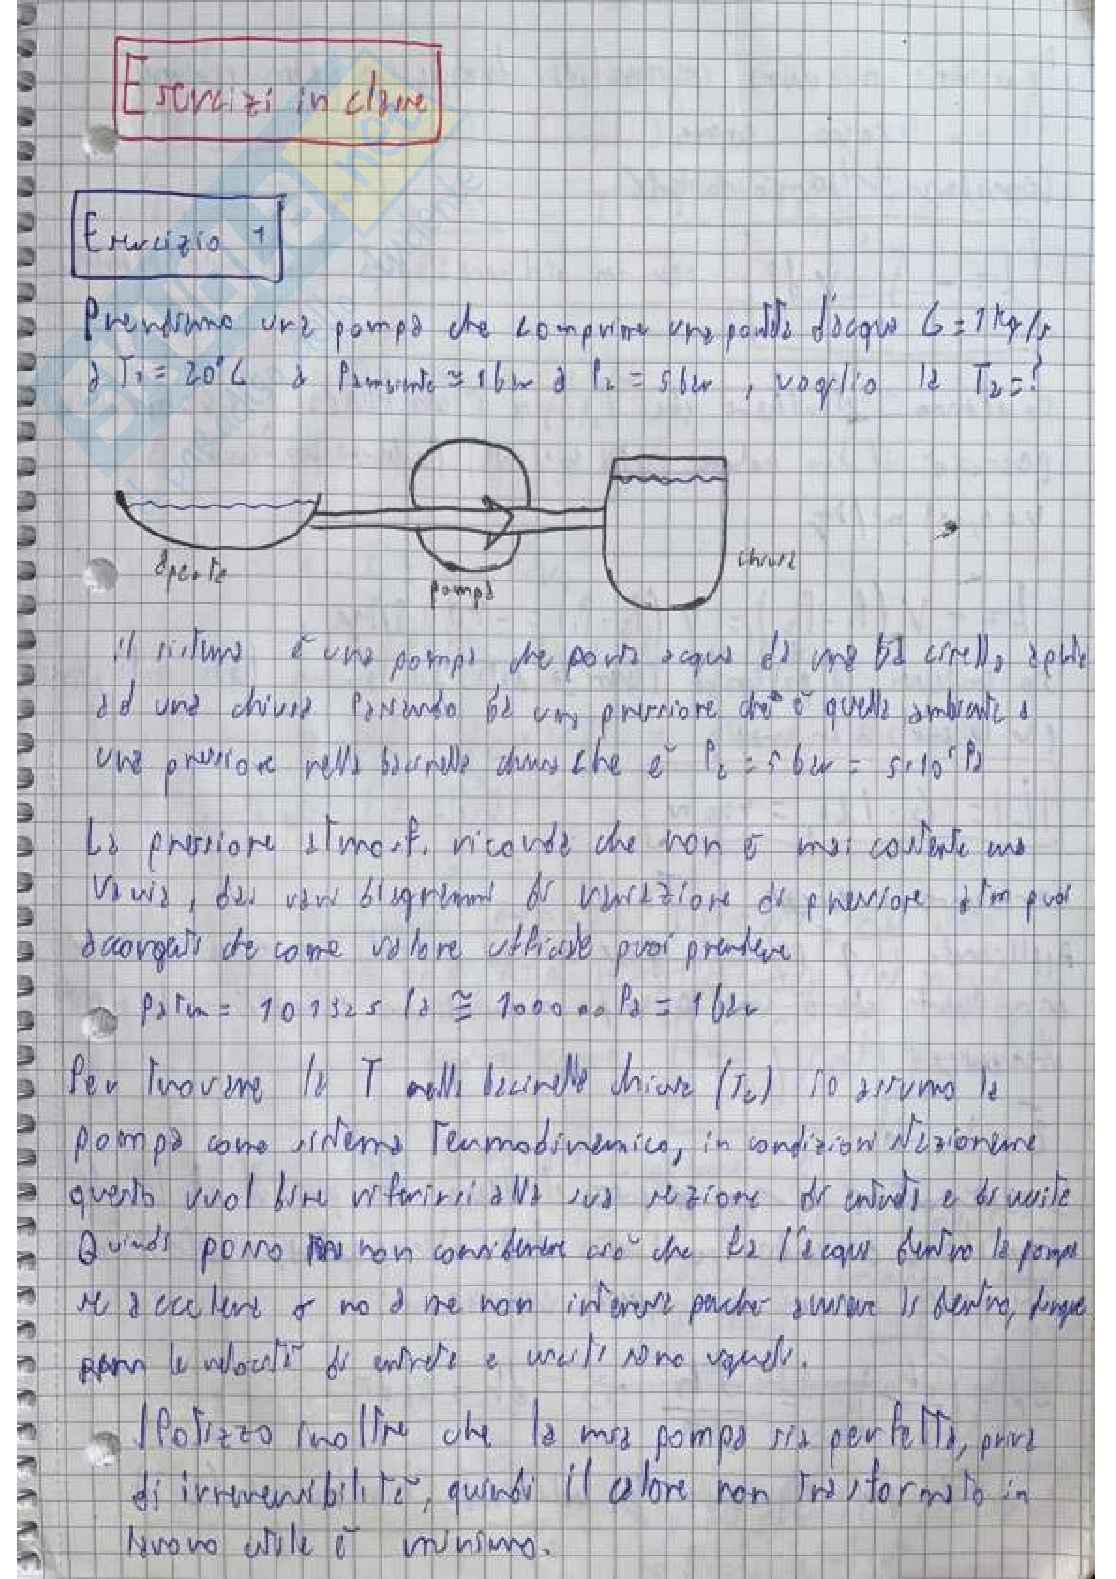 Esercizi in classe
Esercizio 1
Prendiamo una pompa che comprime una portata d'acqua G = 1 kg/s
a T1 = 20°C a Pambiente ≅ 1 bar a P2 = 5 bar, voglio la T2 = ?
aperta
pompa
chiusa
il sistema è una pompa che porta acqua da una bacinella aperta
ad una chiusa passando da una pressione che è quella ambiente a
una pressione nella bacinella chiusa che è P2 = 5 bar = 5·10⁵ Pa
La pressione atmosf. ricorda che non è mai costante ma
varia, dai vari diagrammi di variazione di pressione atm puoi
accorgerti che come valore ufficiale puoi prendere
Patm = 101325 Pa ≅ 100000 Pa = 1 bar
Per trovare la T nella bacinella chiusa (T2) io assumo la
pompa come sistema termodinamico, in condizioni stazionarie
questo vuol dire riferirsi alla sua sezione di entrata e di uscita
Quindi posso non considerare ciò che fa l'acqua dentro la pompa
se accelera o no a me non interessa perché avviene là dentro, dunque
le velocità di entrata e uscita sono uguali.
Ipotizzo inoltre che la mia pompa sia perfetta, priva
di irreversibilità, quindi il calore non trasformato in
lavoro utile è minimo.